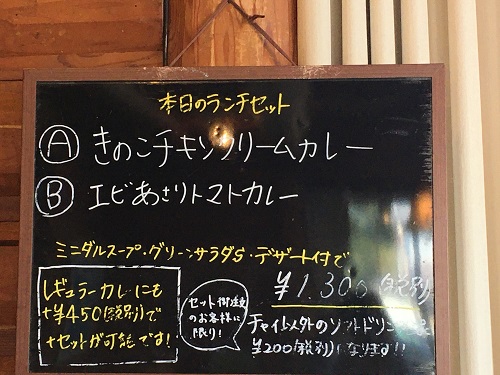 本日のランチセット
Ⓐ きのこチキンクリームカレー
Ⓑ エビあさりトマトカレー
ミニダルスープ・グリーンサラダS・デザート付で
¥1.300(税別)
レギュラーカレーにも
+¥450(税別)で
+セットが可能です!
セット御注文
のお客様に
限り!
チャイ以外のソフトドリンク
¥200(税別)になります!!